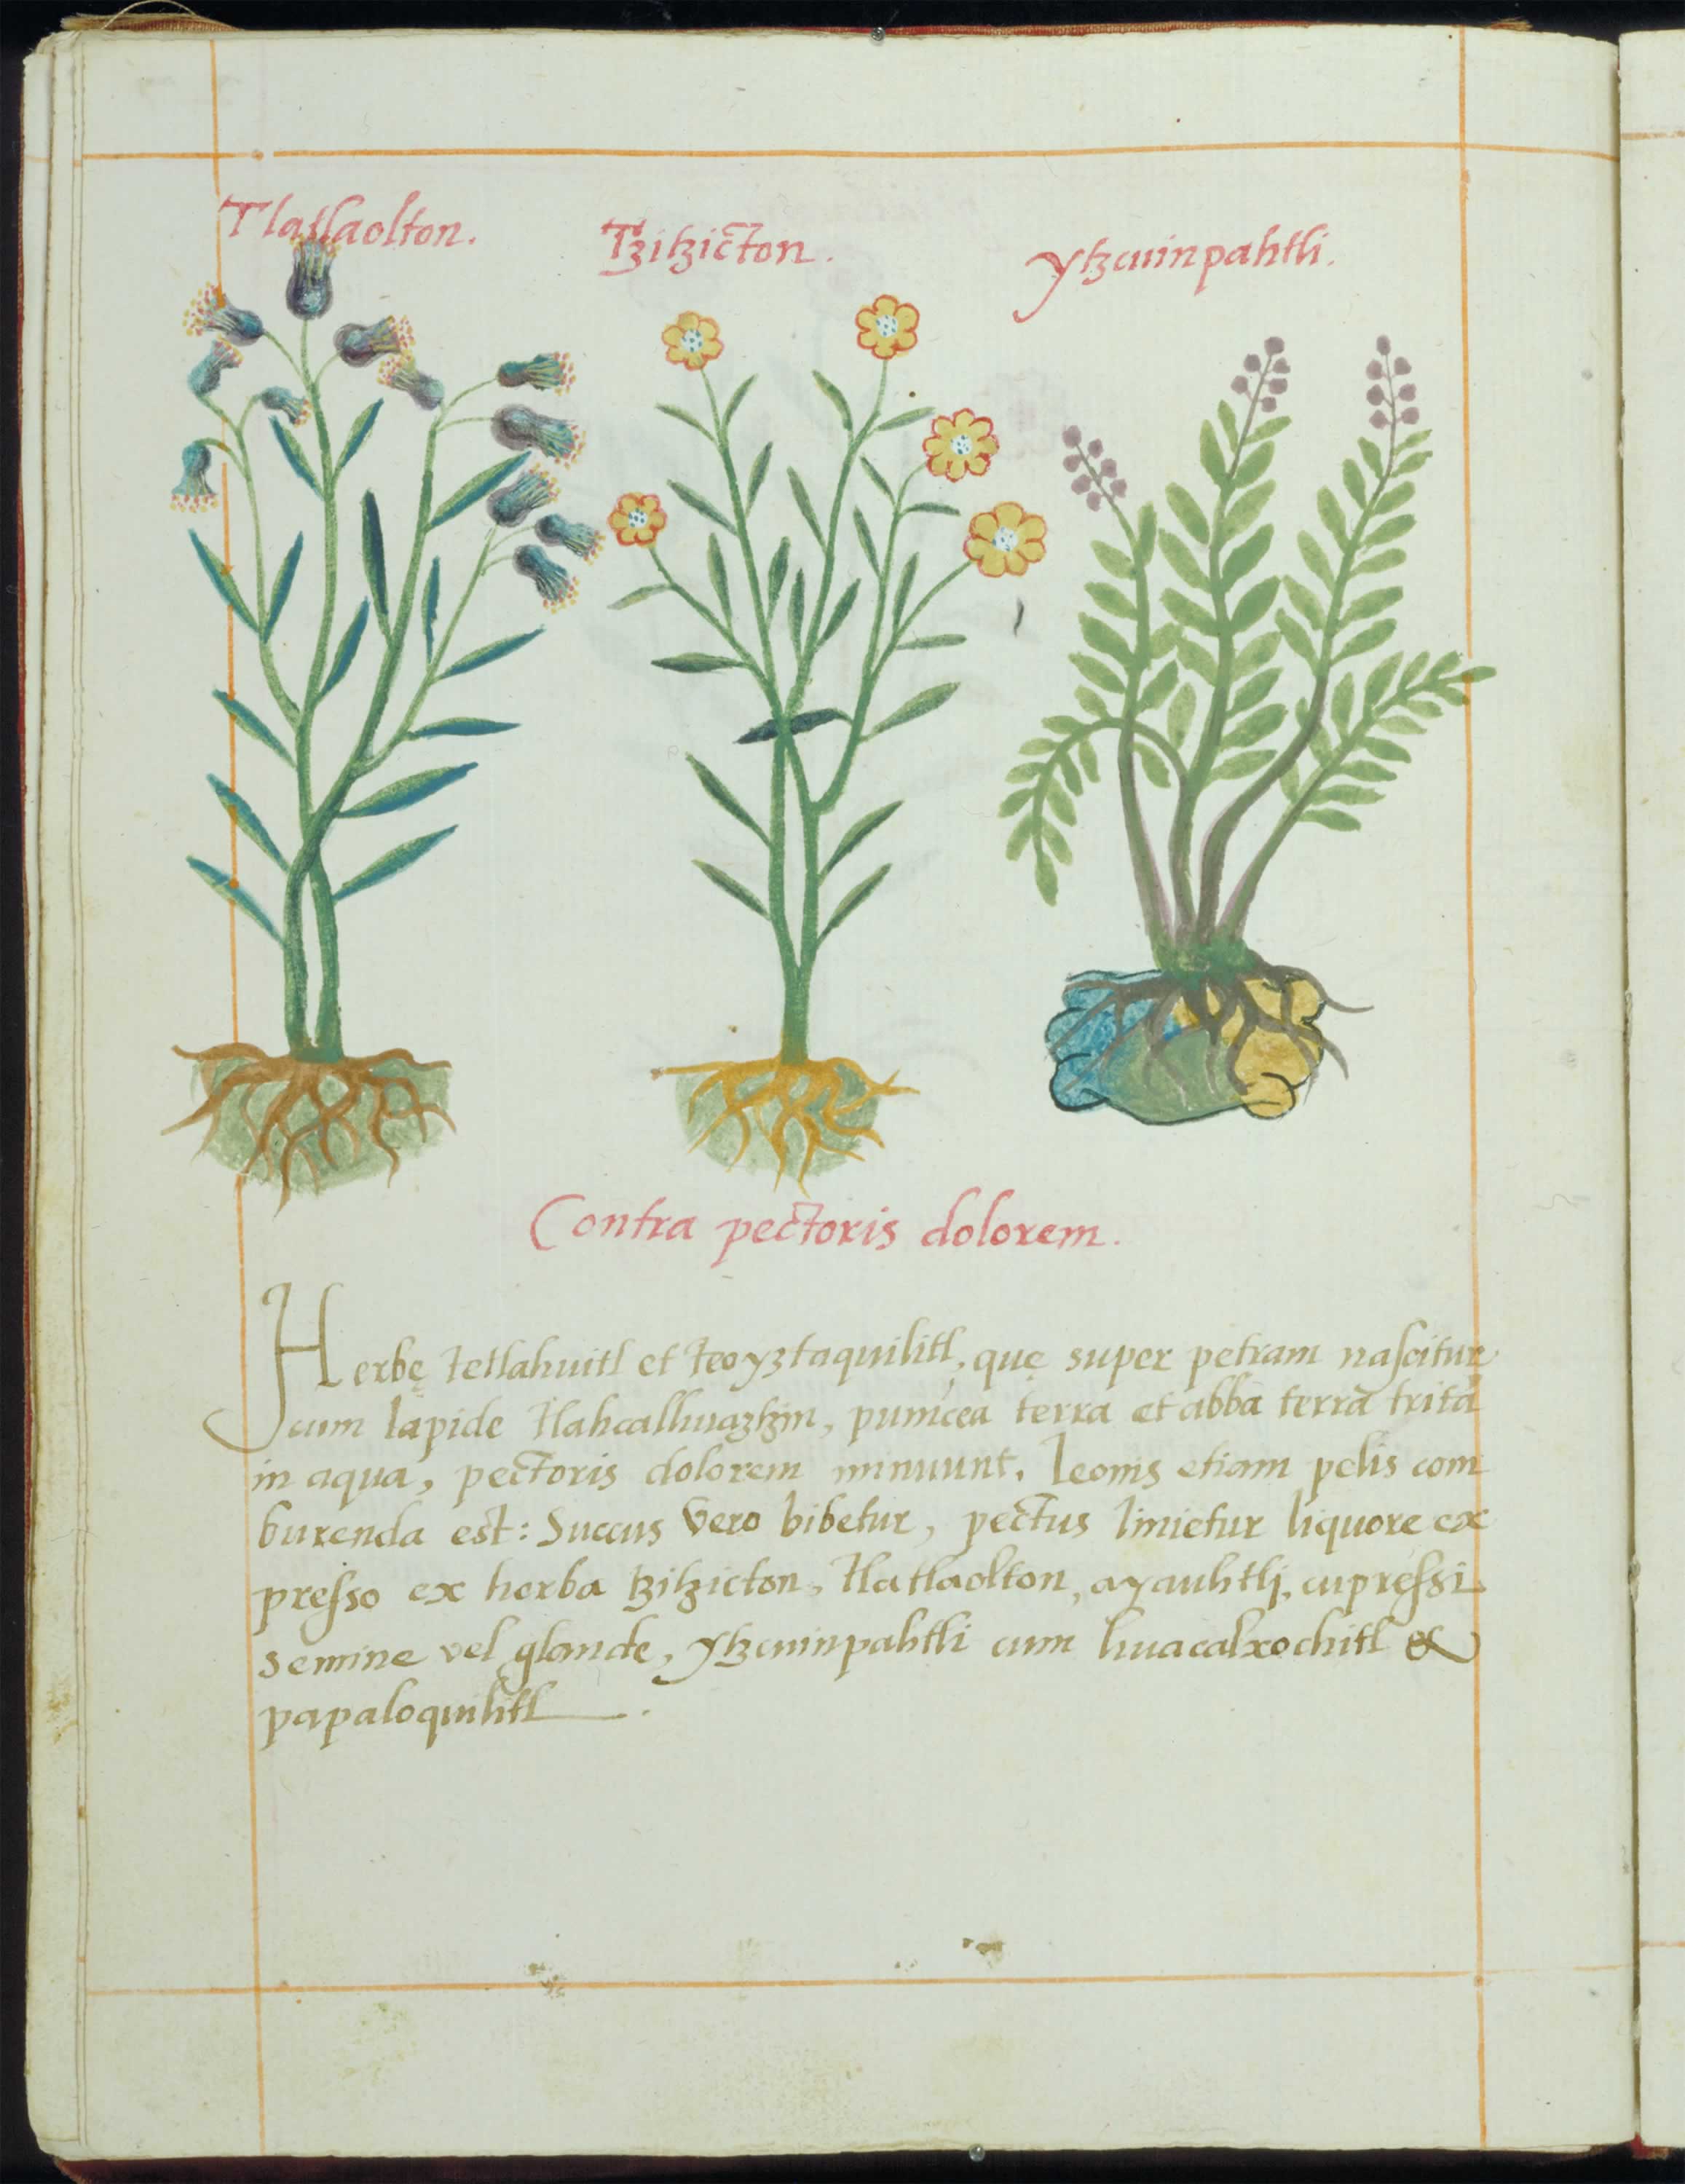 Tlatlaolton.
Tzitzicton.
Ytzcuinpahtli.
Contra pectoris dolorem.
Herbę tetlahuitl et teoyztaquilitl, quę super petram nascitur
cum lapide tlahcalhuatzin, punicea terra et abba terra trita
in aqua, pectoris dolorem minuunt. leonis etiam pelis com
burenda est: Succus vero bibetur, pectus linietur liquore ex
presso ex herba tzitzicton, tlatlaolton, ayauhtlj, cupressi
semine vel glande, ytzcuinpahtli cum huacalxochitl &
papaloquilitl.